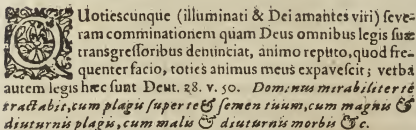 QUotiescunque (illuminati & Dei amantes viri) seve-
ram comminationem quam Deus omnibus legis suæ
transgressoribus denunciat, animo repeto, quod fre-
quenter facio, toties animus meus expavescit; verba
autem legis hæc sunt Deut. 28. v. 50. Dominus mirabiliter te
tractabit, cum plagis super te & semen tuum, cum magnis &
diuturnis plagis, cum malis & diuturnis morbis &c.